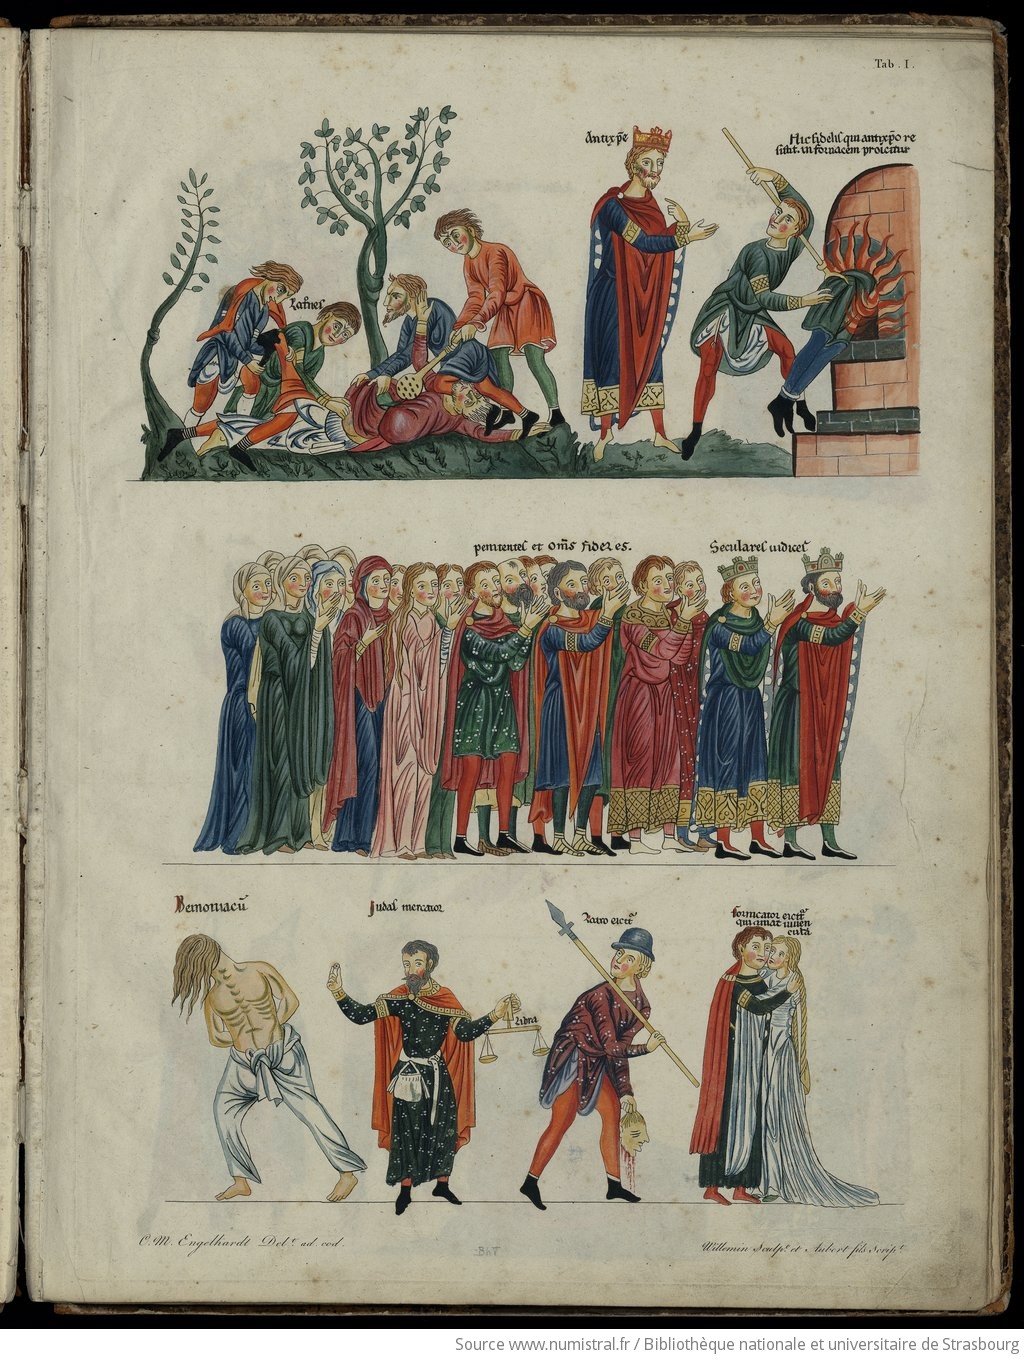 Tab. I.
Antixp̄e
Hic fidelis qui antixp̄o re
sistit. in fornacem proicitur
Latrones
penitentes et om̄s fideles.
Seculares iudices
Demoniacū
Judas mercator
Libra
Latro
fornicator
qui amat iuven
C. M. Engelhardt Del.t ad. cod.
Willemin Sculp.t et Aubert fils Scrip.t
BNU
Source www.numistral.fr / Bibliothèque nationale et universitaire de Strasbourg